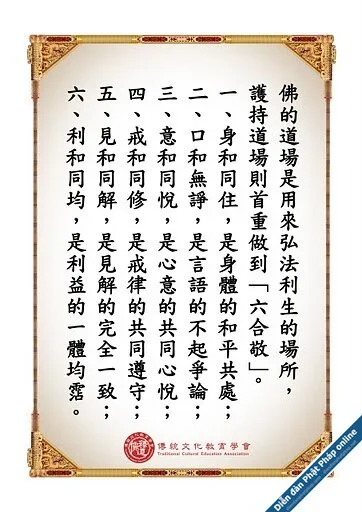 佛的道場是用來弘法利生的場所，
護持道場則首重做到「六合敬」。
一、身和同住，是身體的和平共處；
二、口和無諍，是言語的不起爭論；
三、意和同悅，是心意的共同心悅；
四、戒和同修，是戒律的共同遵守；
五、見和同解，是見解的完全一致；
六、利和同均，是利益的一體均霑。
傳統文化教育學會
Traditional Cultural Education Association
Diễn đàn Phật Pháp online